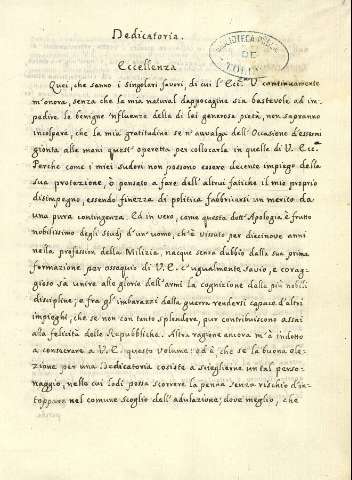 Dedicatoria.
BIBLIOTECA PUBLICA
DE
Eccellenza
Quei, che sanno i singolari favori, di cui l'Ecc.ª V. continuamente
m'onora, senza che la mia natural dappocagine sia bastevole ad im-
pedire le benigne influenze della di lei generosa pietà, non sapranno
incolpare, che la mia gratitudine se n'avvalga dell'Occasione d'essermi
gionta alle mani quest'operetta per collocarla in quelle di V. Ecc.ª
Perche come i miei sudori non possono essere decente impiego della
sua protezione, ò pensato a fare dell'altrui fatiche il mio proprio
disimpegno, essendo finezza di politica fabbricarsi un merito da
una pura contingenza. Ed in vero, come questa dott'Apologia è frutto
nobilissimo degli Studj d'un'uomo, ch'è vissuto per diecinove anni
nella profession della Milizia, nacque senza dubbio dalla sua prima
formazione per ossequio di V. E. c'ugualmente savio, e corag-
gioso sà unire alle glorie dell'armi la cognizione delle più nobili
discipline; e fra gl'imbarazzi della guerra rendersi capace d'altri
impieghi, che se non con tanto splendore, pur contribuiscono assai
alla felicità delle Repubbliche. Altra ragione ancora m'à indotto
a consecrare a V. E. questo volume: ed è, che se la buona ele-
zione per una Dedicatoria consiste a scieglierne un tal perso-
naggio, nelle cui lodi possa scorrere la penna senza rischio d'in-
toppare nel comune scoglio dell'adulazione; dove meglio, che